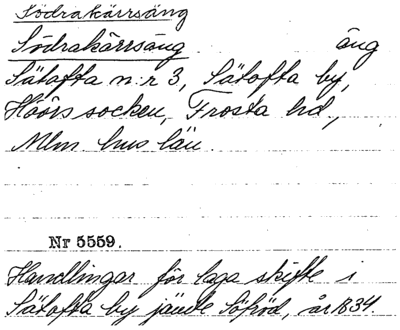 Södrakärrsäng
Södrakärrsäng äng
Sätofta n:r 3, Sätofta by,
Höörs socken, Frosta hd,
Mlm hus län.
Nr 5559.
Handlingar för laga skifte i
Sätofta by jämte Söfröd, år 1834.